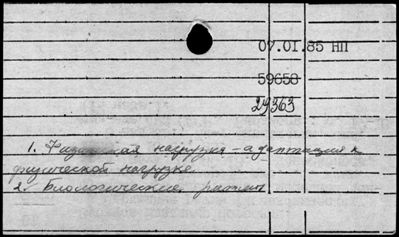 07.01.85 НП
59658
29363
1. Физическая нагрузка - адаптация к
физической нагрузке
2. Биологические ритмы